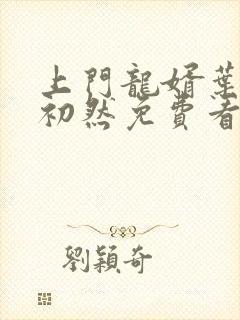 上門龍婿葉
初然免費看
劉穎奇